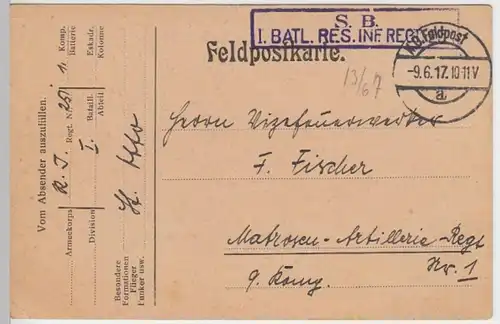 S. B.
I. BATL. RES. INF REG
Feldpostkarte.
K.D. Feldpost
-9.6.17.10-11V
a.
13/6 17
Herrn Vizefeuerwerker
F. Fischer
Matrosen-Artillerie-Regt
Nr. 1
9. Komp.
Vom Absender auszufüllen.
Armeekorps
R. J. Regt. N. 251
1. Komp.
Batterie
Division
I. Bataill.
Abteil
Eskadr.
Kolonne
Besondere
Formationen
Flieger
Funker usw.